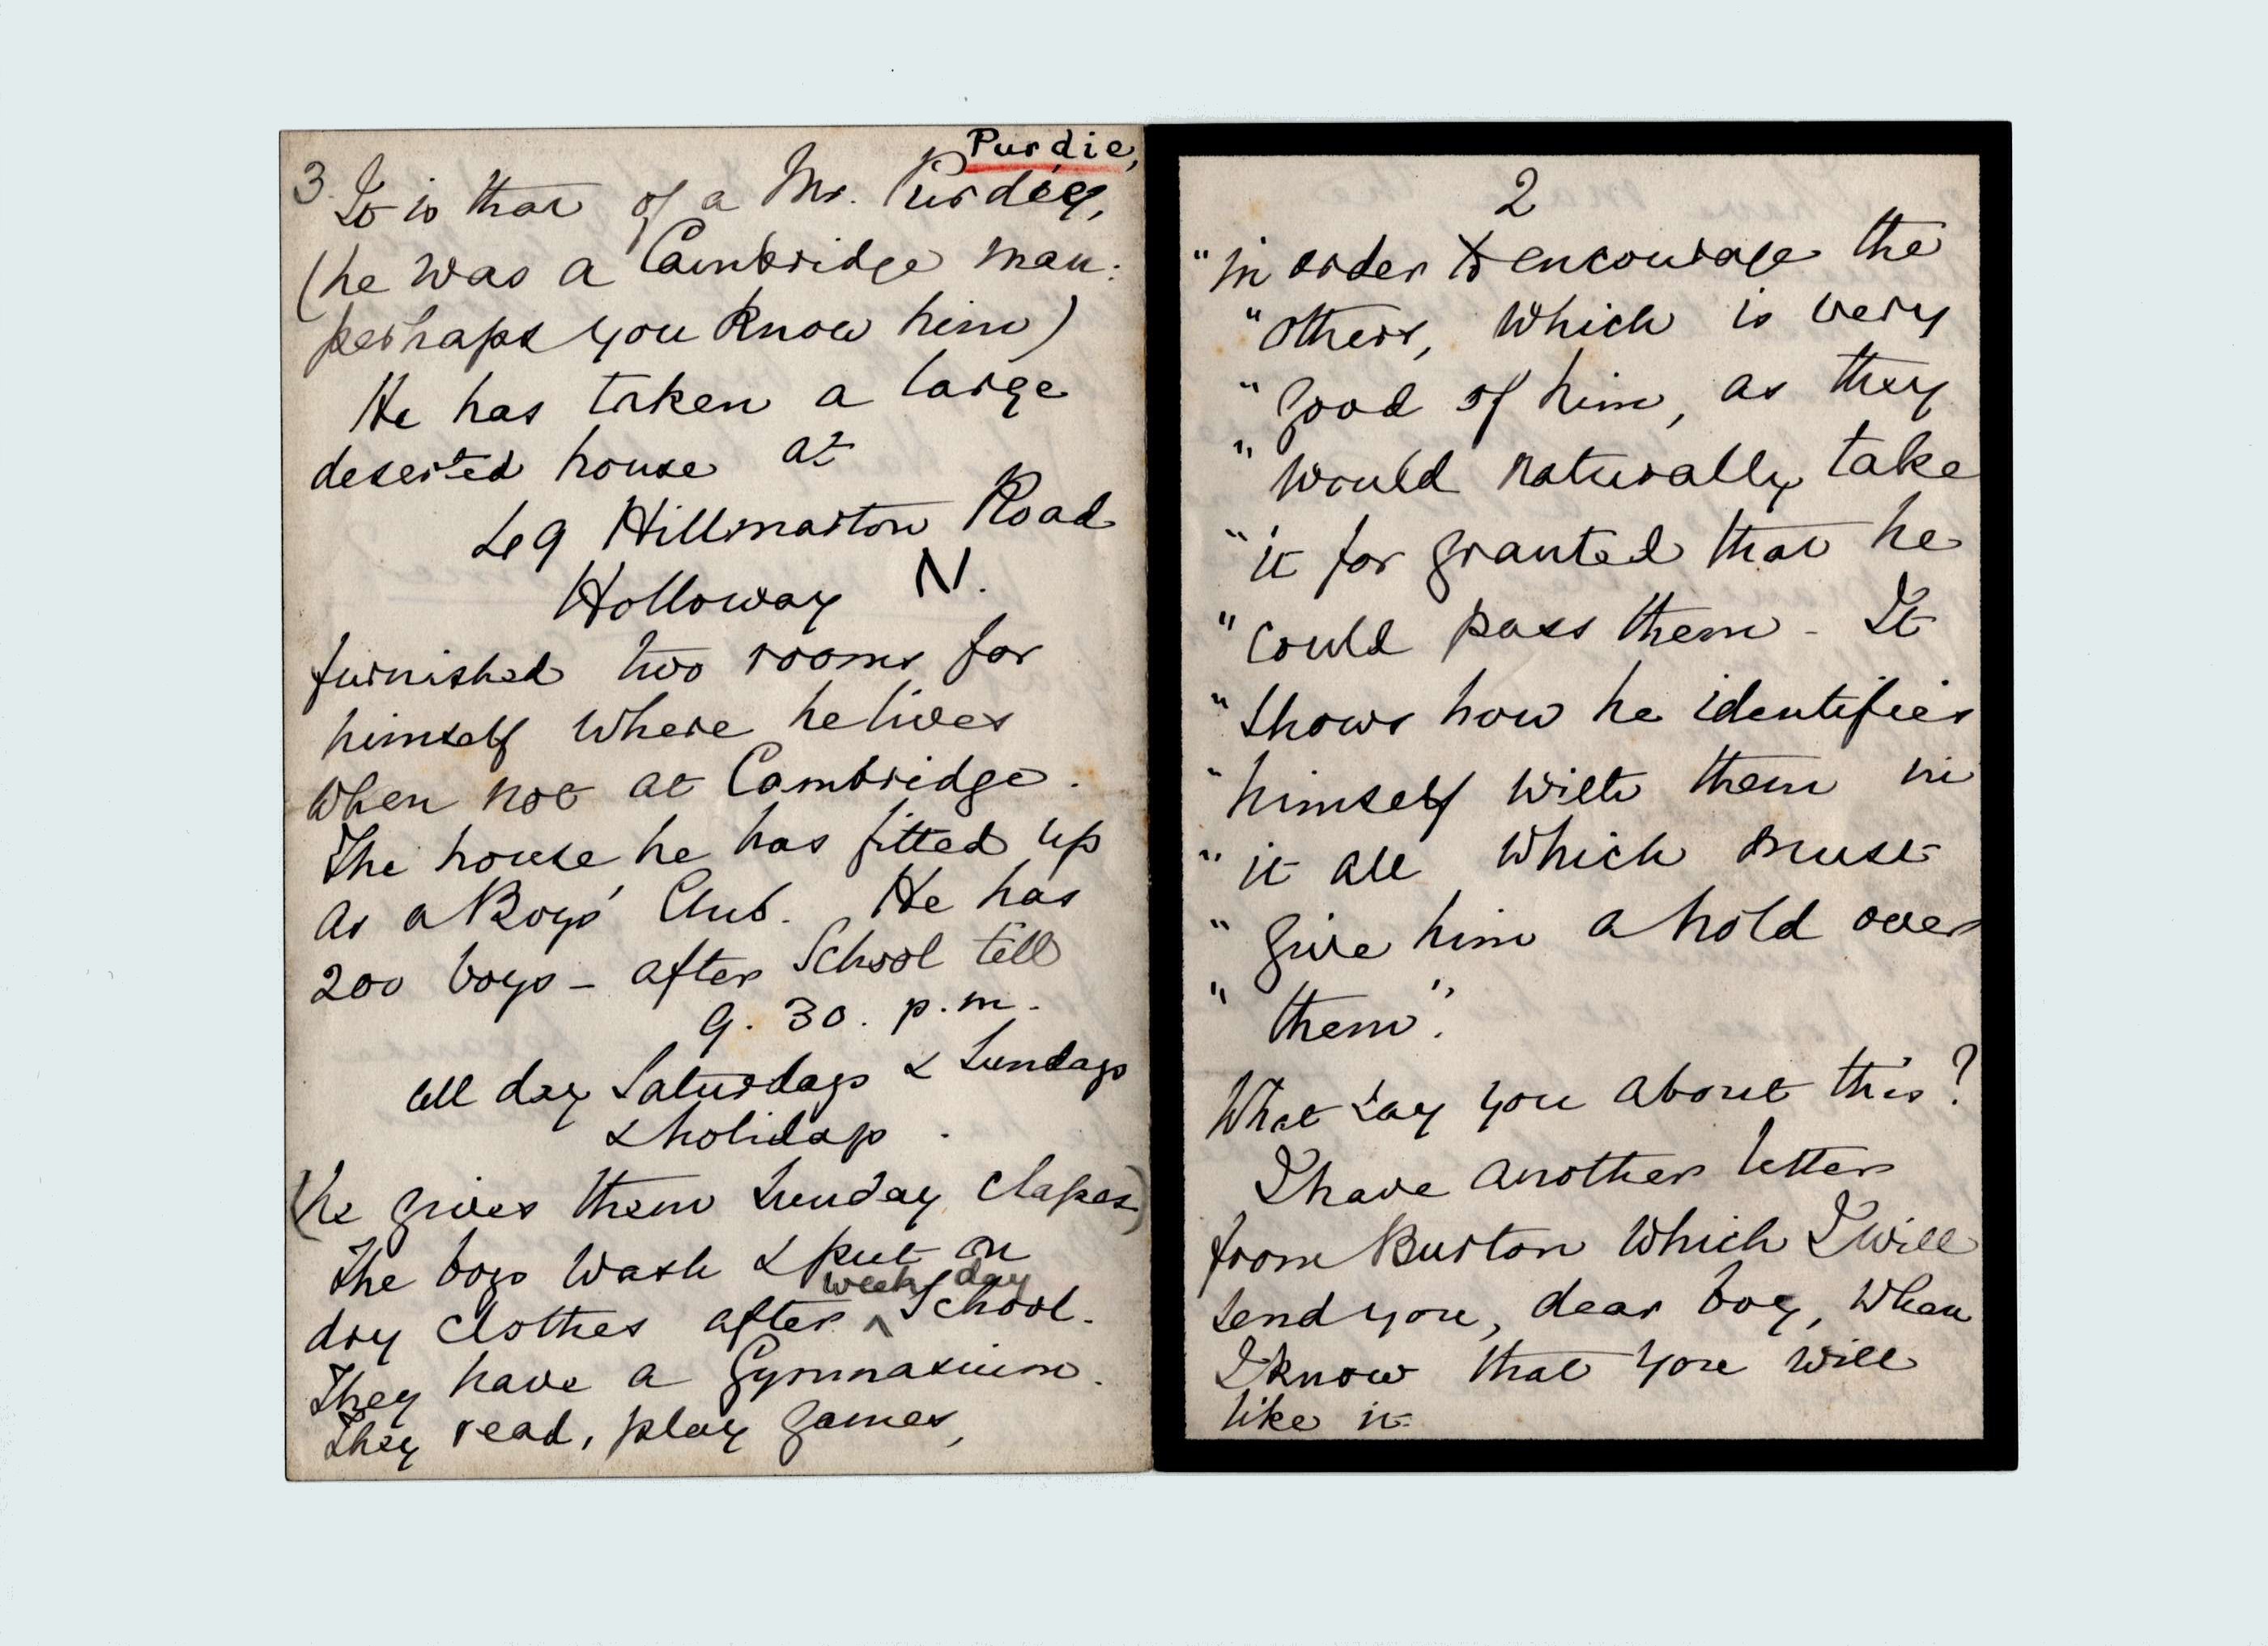 Purdie,
3. It is that of a Mr. Purdey,
(he was a Cambridge man:
perhaps you know him)
He has taken a large
deserted house at
49 Hillmarton Road
Holloway N.
furnished two rooms for
himself where he lives
when not at Cambridge.
The house he has fitted up
as a Boys' Club. He has
200 boys – after School till
9.30. p.m.
all day Saturdays & Sundays
& holidays.
(he gives them Sunday classes)
The boys wash & put on
week day
dry clothes after ^ School.
They have a Gymnasium.
They read, play games,
2
"in order to encourage the
"others, which is very
"good of him, as they
"would naturally take
"it for granted that he
"could pass them – It
"shows how he identifies
"himself with them in
"it all which must
"give him a hold over
"them".
What say you about this?
I have another letter
from Burton which I will
send you, dear boy, when
I know that you will
like it